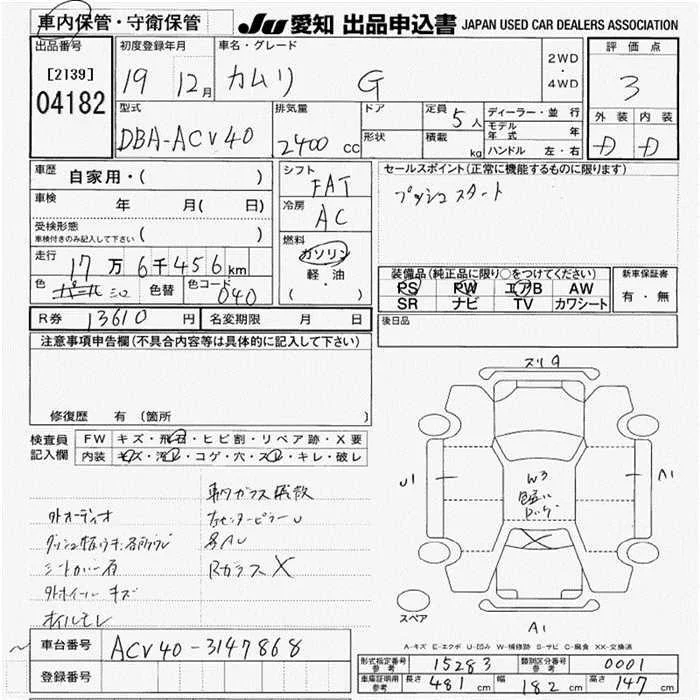 車内保管・守衛保管
JU 愛知 出品申込書 JAPAN USED CAR DEALERS ASSOCIATION
出品番号
[2139]
04182
初度登録年月
19 12月
車名・グレード
カムリ G
2WD
・
4WD
評価点
3
外装 内装
D D
型式
DBA-ACV40
排気量
2400 cc
ドア
形状
定員 5人
積載 kg
ディーラー・並行
モデル年式 年
ハンドル 左・右
車歴 自家用・( )
車検 年 月( 日)
受検形態
車検付きのみ記入して下さい ( )
走行 17万6千456km
色 パール シロ 色替 色コード 040
シフト
FAT
冷房
AC
燃料
ガソリン
軽油
( ・ )
セールスポイント(正常に機能するものに限ります)
プッシュスタート
装備品(純正品に限り○をつけてください)
PS PW エアB AW
SR ナビ TV カワシート
新車保証書
有・無
R券 13610円 名変期限 月 日
後日品
注意事項申告欄(不具合内容等は具体的に記入して下さい)
修復歴 有 (箇所 )
検査員記入欄
FW キズ・飛石・ヒビ割・リペア跡・X要
内装 キズ・汚レ・コゲ・穴・スレ・キレ・破レ
外オーディオ
シートカバー有
外ホイール キズ
オイルモレ
右センターピラーU
Rガラス X
スリキ
U1
A1
W3
A1
スペア
A-キズ E-エクボ U-凹み W-補修跡 S-サビ C-腐食 XX-交換済
車台番号 ACV40-3147868
登録番号
形式指定番号 参考 15283 類別区分番号 参考 0001
車庫証明用 参考 長さ 481cm 巾 182cm 高さ 147cm